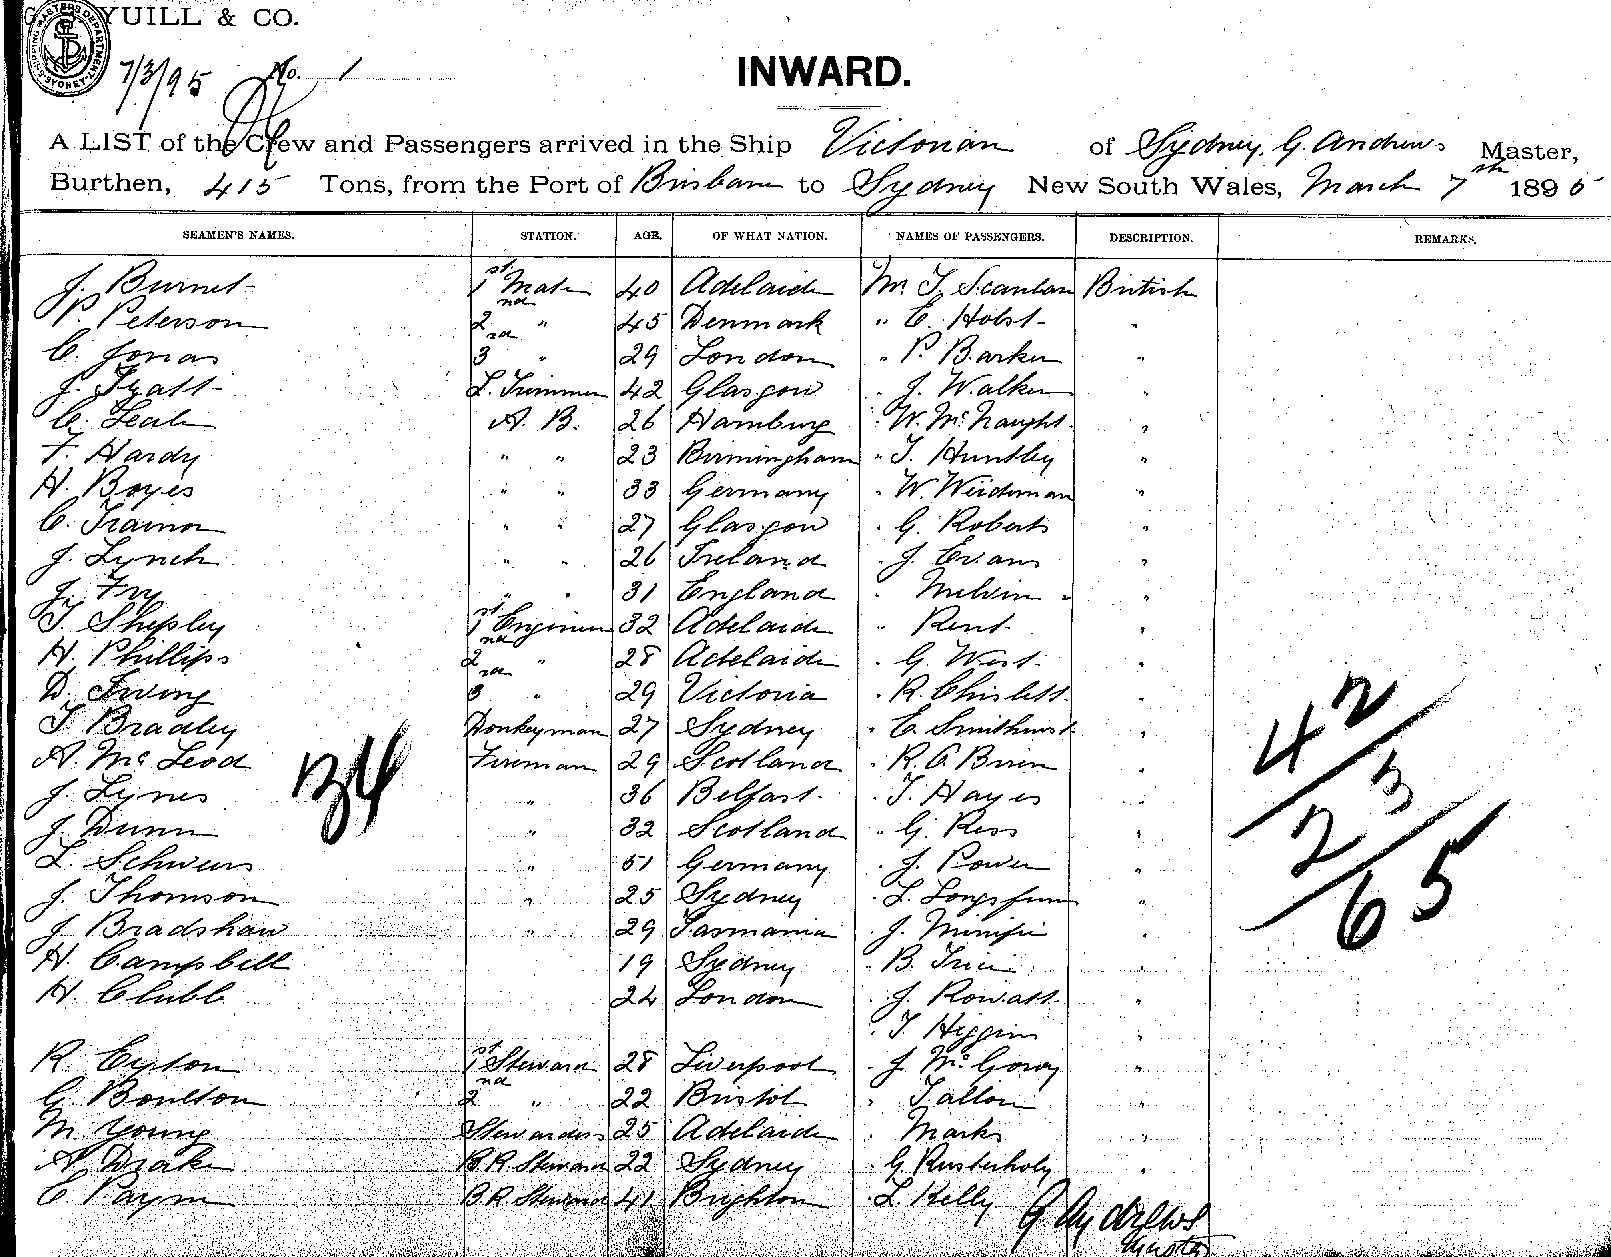 YUILL & CO.
SHIPPING MASTERS DEPARTMENT SYDNEY
7/3/95 No. 1
INWARD.
A LIST of the Crew and Passengers arrived in the Ship Victorian of Sydney, G. Andrews Master,
Burthen, 415 Tons, from the Port of Brisbane to Sydney New South Wales, March 7th 1895
SEAMEN'S NAMES. STATION. AGE. OF WHAT NATION. NAMES OF PASSENGERS. DESCRIPTION. REMARKS.
J. Burnet 1st Mate 40 Adelaide Mr. T. Scanlan British
P. Peterson 2nd " 45 Denmark " E. Holst "
C. Jonas 3rd " 29 London " P. Barker "
J. Lyall L. Trimmer 42 Glasgow " J. Walker "
C. A. B. 26 Hamburg " W. McNaught "
F. Hardy " " 23 Birmingham " T. Huntley "
H. Boyes " " 33 Germany " W. Weideman "
C. Trainor " " 27 Glasgow " G. Roberts "
J. Lynch " " 26 Ireland " J. Evans "
J. Fry " " 31 England " Melvin "
T. Shepley 1st Engineer 32 Adelaide " Kent "
H. Phillips 2nd " 28 Adelaide " G. West "
D. Ewing 3rd " 29 Victoria " R. Chislett "
T. Bradley Donkeyman 27 Sydney " E. Smithurst "
A. McLeod Fireman 29 Scotland " R. O'Brien "
J. Lynes " 36 Belfast " T. Hayes "
J. Dunn " 32 Scotland " G. Ross "
L. " 51 Germany " J. Power "
J. Thomson " 25 Sydney " L. "
J. Bradshaw " 29 Tasmania " J. "
H. Campbell 19 Sydney " B. "
H. Clubb 24 London " J. Rowatt "
" T. Higgins "
R. Eyton 1st Steward 28 Liverpool " J. "
G. Boulton 2nd " 22 Bristol " Tallon "
M. Young Stewardess 25 Adelaide " Marks "
A. Drake B.R. Steward 22 Sydney " G. Rusterholy "
E. Payne B.R. Steward 41 Brighton " L. Kelly
42
23
65
G. Andrews
Master